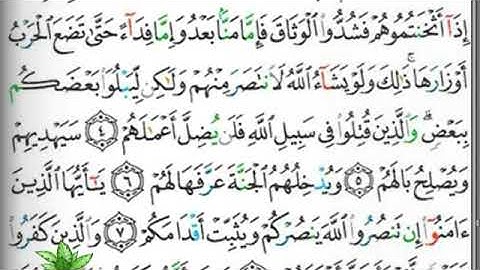 إِذَآ أَثْخَنتُمُوهُمْ فَشُدُّوا۟ الْوَثَاقَ فَإِمَّا مَنًّۢا بَعْدُ وَإِمَّا فِدَآءً حَتَّىٰ تَضَعَ الْحَرْبُ
أَوْزَارَهَا ۚ ذَٰلِكَ وَلَوْ يَشَآءُ اللَّهُ لَانتَصَرَ مِنْهُمْ وَلَٰكِن لِّيَبْلُوَا۟ بَعْضَكُم
بِبَعْضٍ ۗ وَالَّذِينَ قُتِلُوا۟ فِى سَبِيلِ اللَّهِ فَلَن يُضِلَّ أَعْمَٰلَهُمْ ٤ سَيَهْدِيهِمْ
وَيُصْلِحُ بَالَهُمْ ٥ وَيُدْخِلُهُمُ الْجَنَّةَ عَرَّفَهَا لَهُمْ ٦ يَٰٓأَيُّهَا الَّذِينَ
ءَامَنُوٓا۟ إِن تَنصُرُوا۟ اللَّهَ يَنصُرْكُمْ وَيُثَبِّتْ أَقْدَامَكُمْ ٧ وَالَّذِينَ كَفَرُوا۟